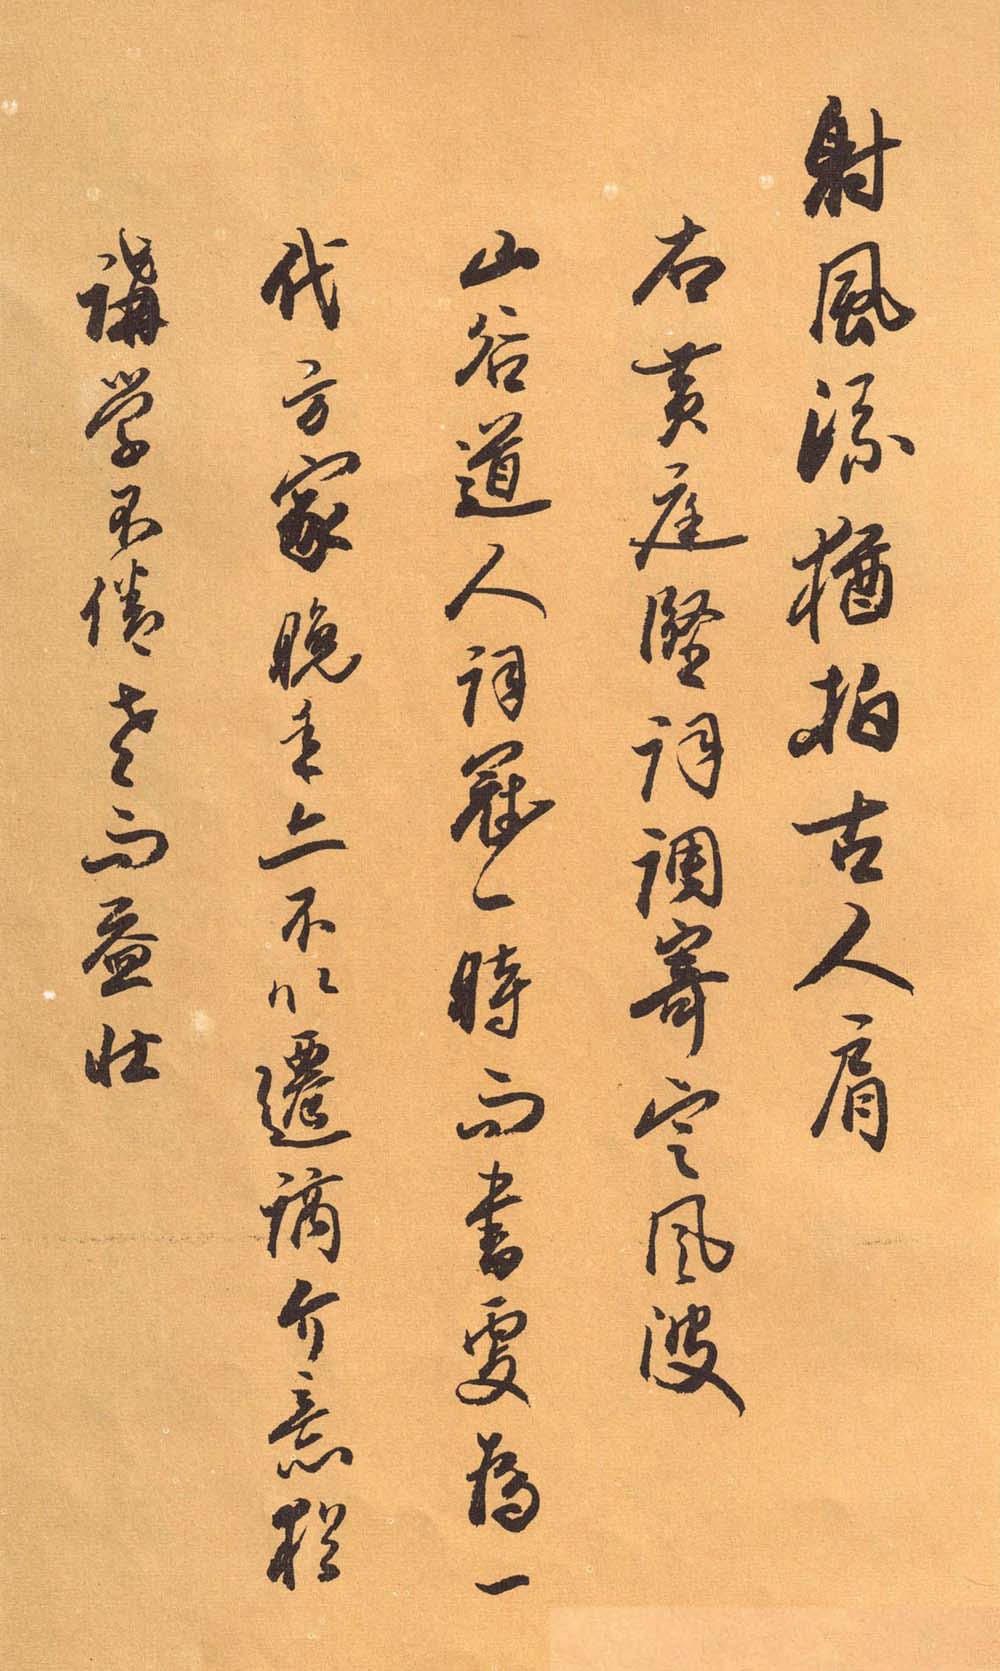 射風流猶拍古人肩
右黄庭堅詞調寄定風波
山谷道人詞冠一時而書更為一
代方家晚年亦不以遷謫介意猶
講学不倦老而益壮